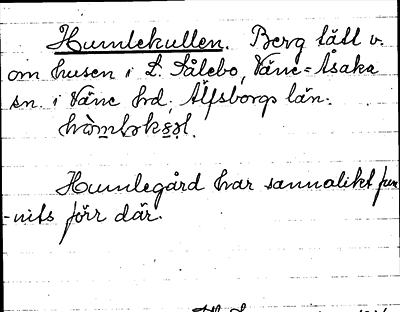 Humlekullen. Berg tätt v.
om husen i L. Sålebo, Väne-Åsaka
sn. i Väne hrd, Älfsborgs län.
Humlegård har sannolikt fun
-nits förr där.